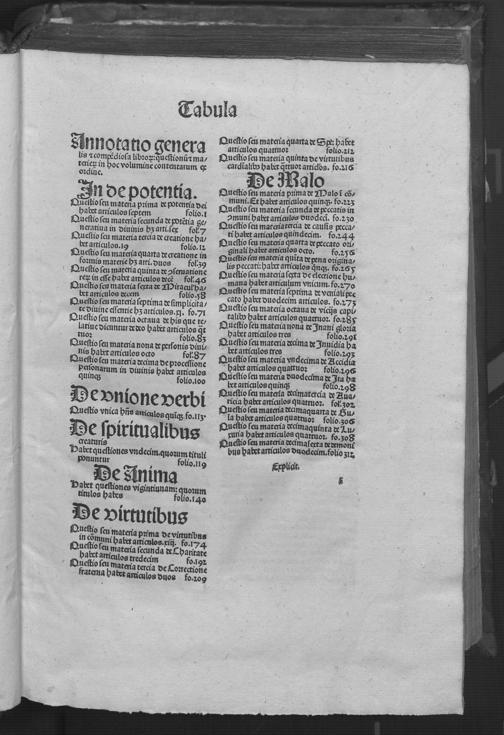 Tabula
Annotatio genera
lis ⁊ compēdiosa libroꝝ: questionūꝫ ma-
terieꝝ in hoc volumine contentarum ex
ordine.
In de potentia.
Questio seu materia prima de potentia dei
habet articulos septem folio.1
Questio seu materia secunda de potētia ge-
neratiua in diuinis hꝫ arti.sex fol.7
Questio seu materia tercia de creatione ha-
bet articulos.19 folio.12
Questio seu materia quarta de creatione in
formis materie hꝫ arti. duos fol.39
Questio seu materia quinta de ꝯseruatione
reꝝ in esse habet articulos decē fol.46
Questio seu materia sexta de Miraculis ha-
bet articulos decem folio.58
Questio seu materia septima de simplicita-
te diuine essentie hꝫ articulos.xj. fo.71
Questio seu materia octaua de his que re-
latiue dicuntur de deo habet articulos q̄t
tuor folio.83
Questio seu materia nona de personis diui-
nis habet articulos octo fol.87
Questio seu materia decima de processione
personarum in diuinis habet articulos
quinqꝫ folio.100
De vnione verbi
Questio vnica hn̄s articulos quiqꝫ fo.113
De spiritualibus
creaturis
Habet questiones vndecim. quorum tituli
ponuntur folio.119
De Anima
Habet questiones vigintiunam: quorum
titulos habes folio.140
De virtutibus
Questio seu materia prima de virtutibus
in cōmuni habet articulos.xiij. fo.174
Questio seu materia secunda de Charitate
habet articulos tredecim fo.192
Questio seu materia tercia de Correctione
fraterna habet articulos duos fo.209
Questio seu materia quarta de Spe: habet
articulos quattuor folio.212
Questio seu materia quinta de virtutibus
cardinalibꝰ habet q̄ttuor articlos. fo.216
De Malo
Questio seu materia prima de Malo ī cō-
muni. Et habet articulos quinqꝫ. fo.223
Questio seu materia secunda de peccatis in
ꝯmuni habet articulos duodeci. fo.230
Questio seu materia tercia de causis pecca-
ti habet articulos quindecim. fo.244
Questio seu materia quarta de peccato ori-
ginali habet articulos octo. fo.256
Questio seu materia quita de pena origina-
lis peccati: habet articulos qnqꝫ. fo.265
Questio seu materia sexta de electione hu-
mana habet articulum vnicum. fo.270
Questio seu materia septima de veniali pec-
cato habet duodecim articulos. fo.273
Questio seu materia octaua de vicijs capi-
talibꝰ habet articulos quattuor. fo.285
Questio seu materia nona de Inani gloria
habet articulos tres folio.291
Questio seu materia decima de Inuidia ha-
bet articulos tres folio.293
Questio seu materia vndecima de Accidia
habet articulos quattuor folio.296
Questio seu materia duodecima de Ira ha
bet articulos quinqꝫ folio.298
Questio seu materia decimatercia de Aua-
ricia habet articulos quattuor. fo.302
Questio seu materia decimaquarta de Gu-
la habet articulos quattuor folio.306
Questio seu materia decimaquinta de Lu-
xuria habet articulos quattuor. fo.308
Questio seu materia decimasexta de demoni
bus habet articulos duodecim. folio 312
Explicit.